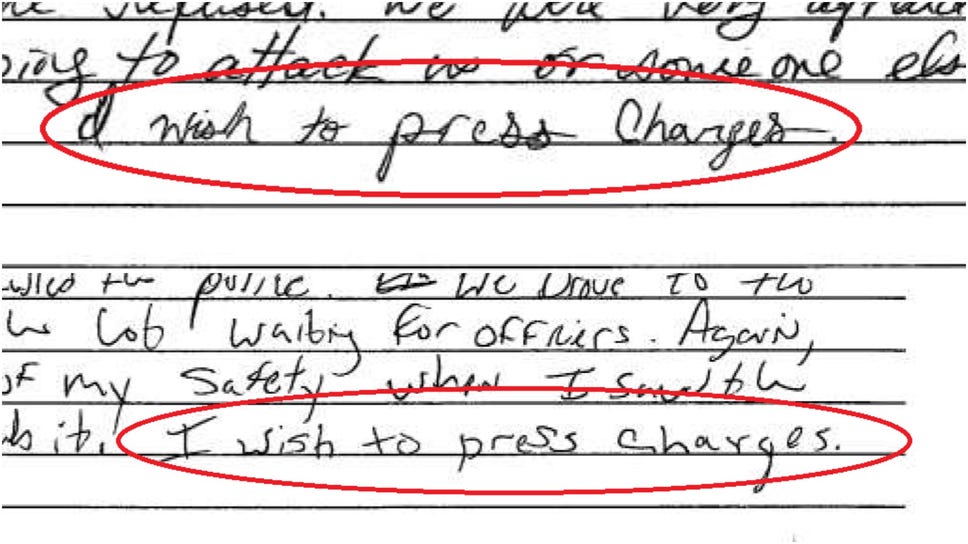 We were very
to attack us or someone els
I wish to press Charges.
the police. We drove to the
Lob waiting For officers. Again,
of my Safety when I saw the
it. I wish to press charges.